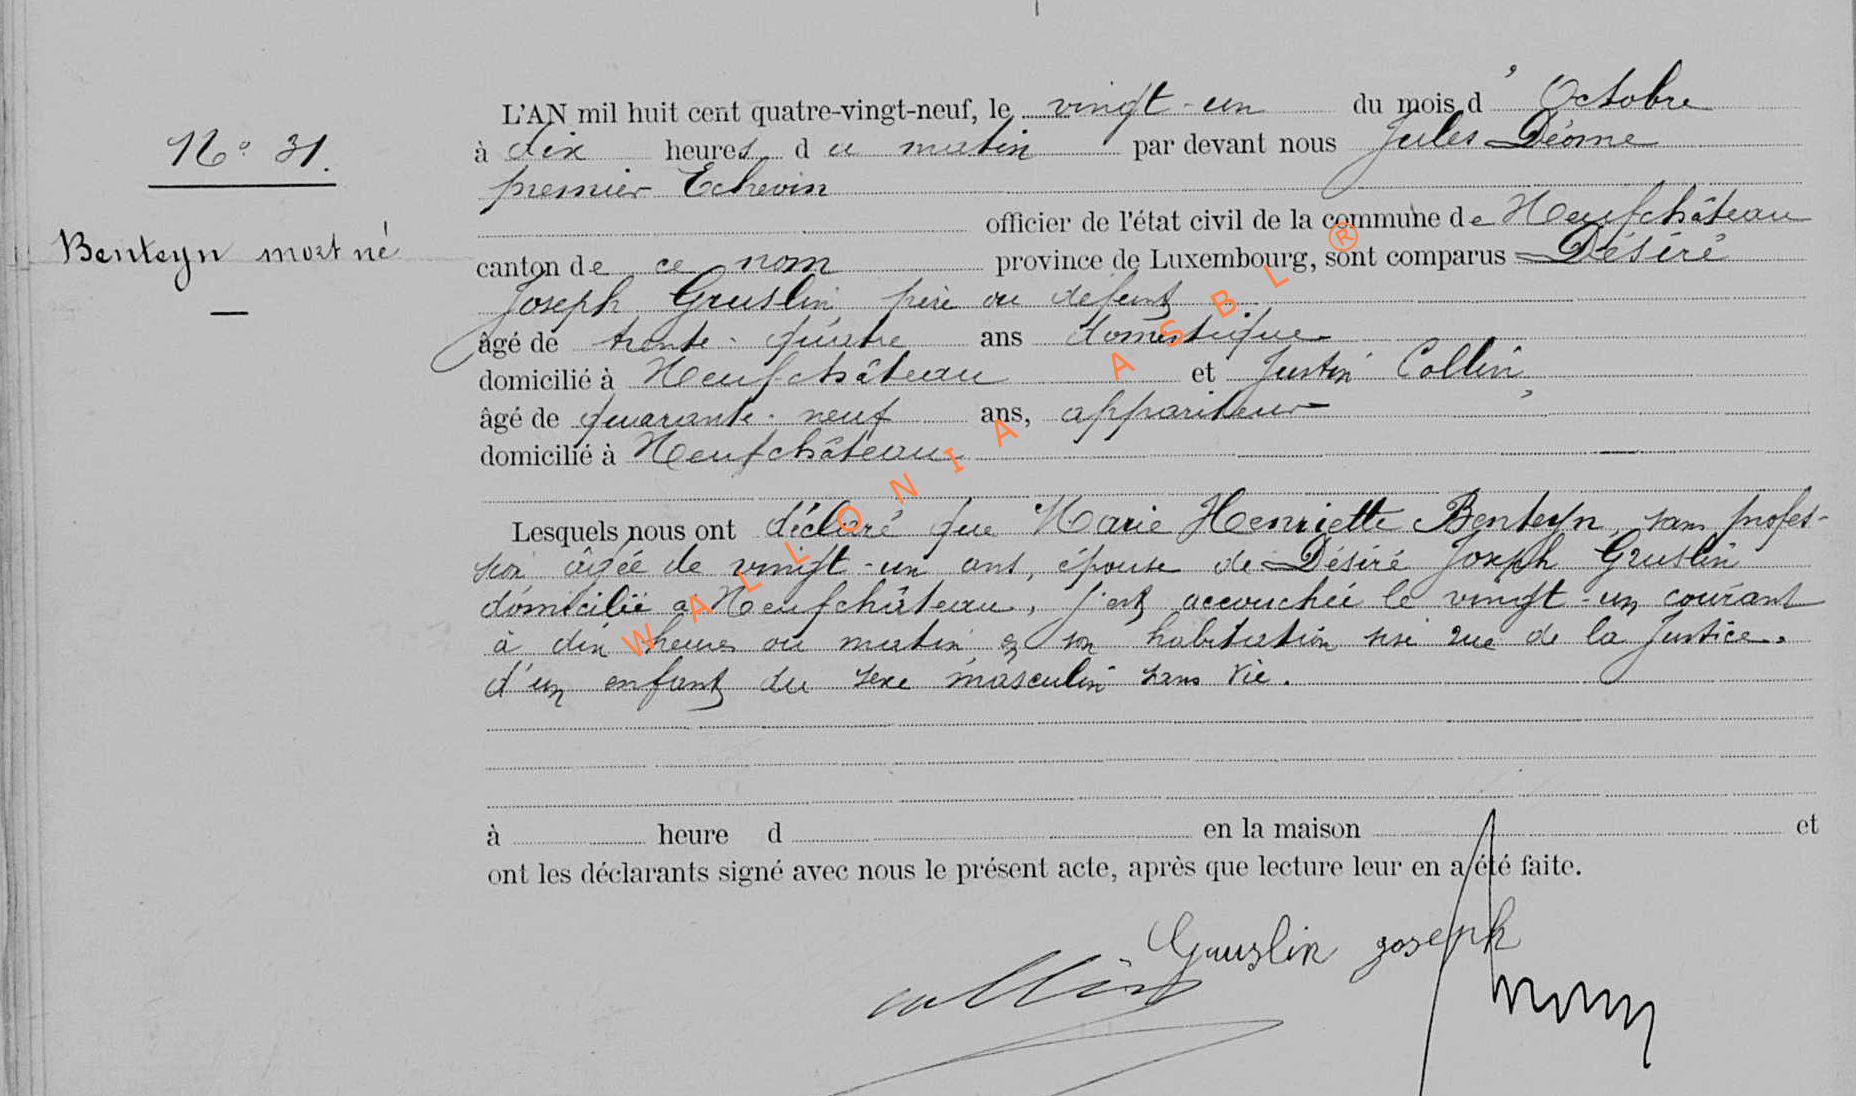 N° 31.
Benteyn mort né
L'AN mil huit cent quatre-vingt-neuf, le vingt-un du mois d'Octobre
à dix heures du matin par devant nous Jules Déome
premier Echevin
officier de l'état civil de la commune de Neufchâteau
canton de ce nom province de Luxembourg, sont comparus Désiré
Joseph Gruslin père du defunt
âgé de trente-quatre ans domestique
domicilié à Neufchâteau et Justin Collin,
âgé de quarante-neuf ans, appariteur
domicilié à Neufchâteau
Lesquels nous ont déclaré que Marie Henriette Benteyn, sans profes-
sion âgée de vingt-un ans, épouse de Désiré Joseph Gruslin
domicilié à Neufchâteau, s'est accouchée le vingt-un courant
à dix heures du matin en son habitation sise rue de la Justice.
d'un enfant du sexe masculin sans vie.
à heure d en la maison et
ont les déclarants signé avec nous le présent acte, après que lecture leur en a été faite.
Gruslin joseph
collin
WALLONIA ASBL ®